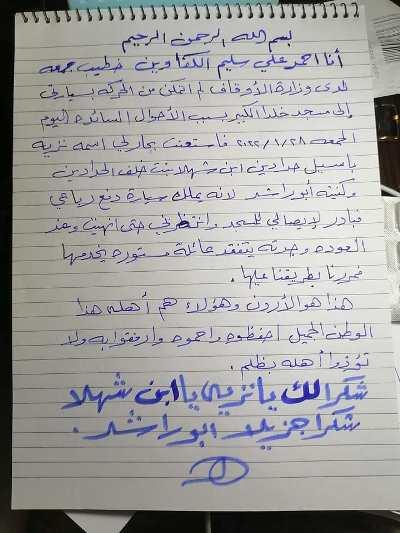 بسم الله الرحمن الرحيم
أنا احمد علي سليم الكفاوين خطيب جمعه
لدى وزارة الأوقاف لم اتمكن من الحركه بسيارتي
إلى مسجد خلدا الكبير بسبب الأحوال السائده اليوم
الجمعه ٢٠٢٢/١/٢٨ فاستعنت بجار لي اسمه نزيه
باسيل حدادين ابن شهلا بنت خلف الحدادين
وكنيته أبوراشد لانه يملك سيارة دفع رباعي
فبادر لإيصالي للمسجد وانتظرني حتى انهيت وعند
العوده وجدته يتفقد عائلة مستوره يخدمها
فمررنا بطريقنا عليها.
هذا هو الأردن وهؤلاء هم أهله هذا
الوطن الجميل احفظوه واحموه وارفقوا به ولا
تؤذوا أهله بظلم.
شكرا لك يا نزيه يا ابن شهلا
شكرا جزيلا ابو راشد.